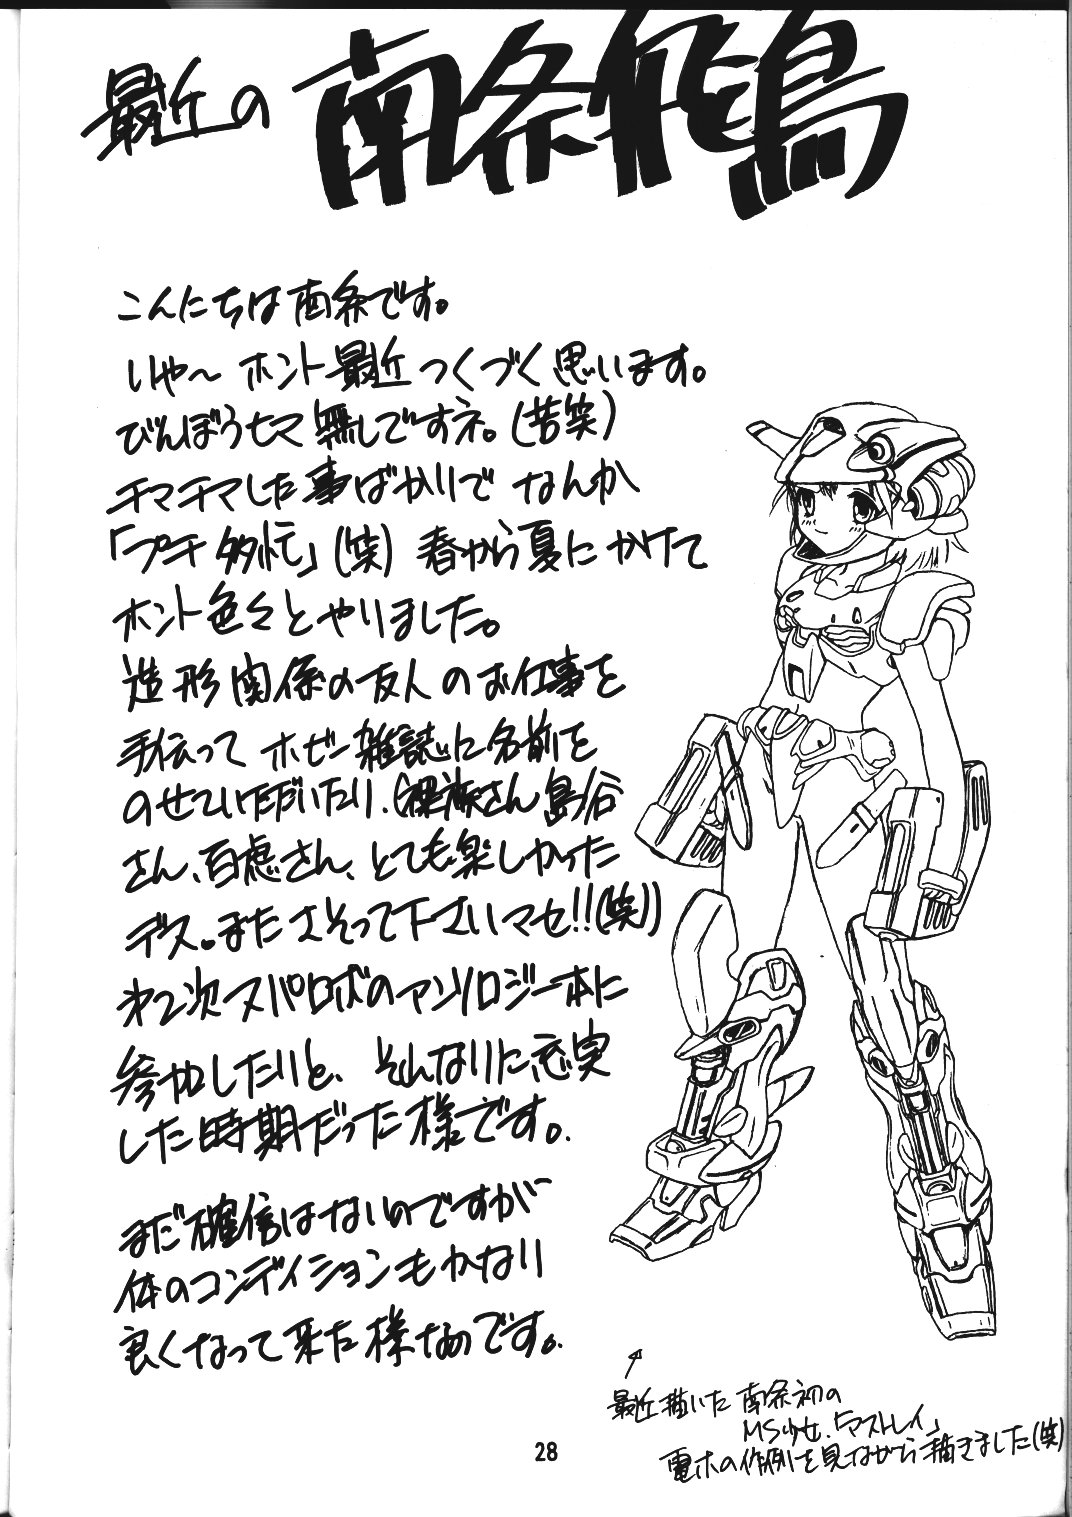 最近の 南条飛鳥
こんにちは南条です。
いや〜 ホント最近つくづく思います。
びんぼうヒマ無しですネ。(苦笑)
チマチマした事ばかりで なんか
「プチ多忙」(笑) 春から夏にかけて
ホント色々とやりました。
造形関係の友人のお仕事を
手伝って ホビー雑誌に名前を
のせていただいたり、(裸族さん 島谷
さん、百虎さん、とても楽しかった
デス。また さそって下さいマセ!!(笑))
オ2次スパロボのアンソロジー本に
参加したりと、そんなりに充実
した時期だった様です。
まだ確信はないのですが
体のコンディションもかなり
良くなって来た様なのです。
最近描いた 南条初の
MS少女.「アストレイ」
電ホの作例を見ながら描きました(笑)
28